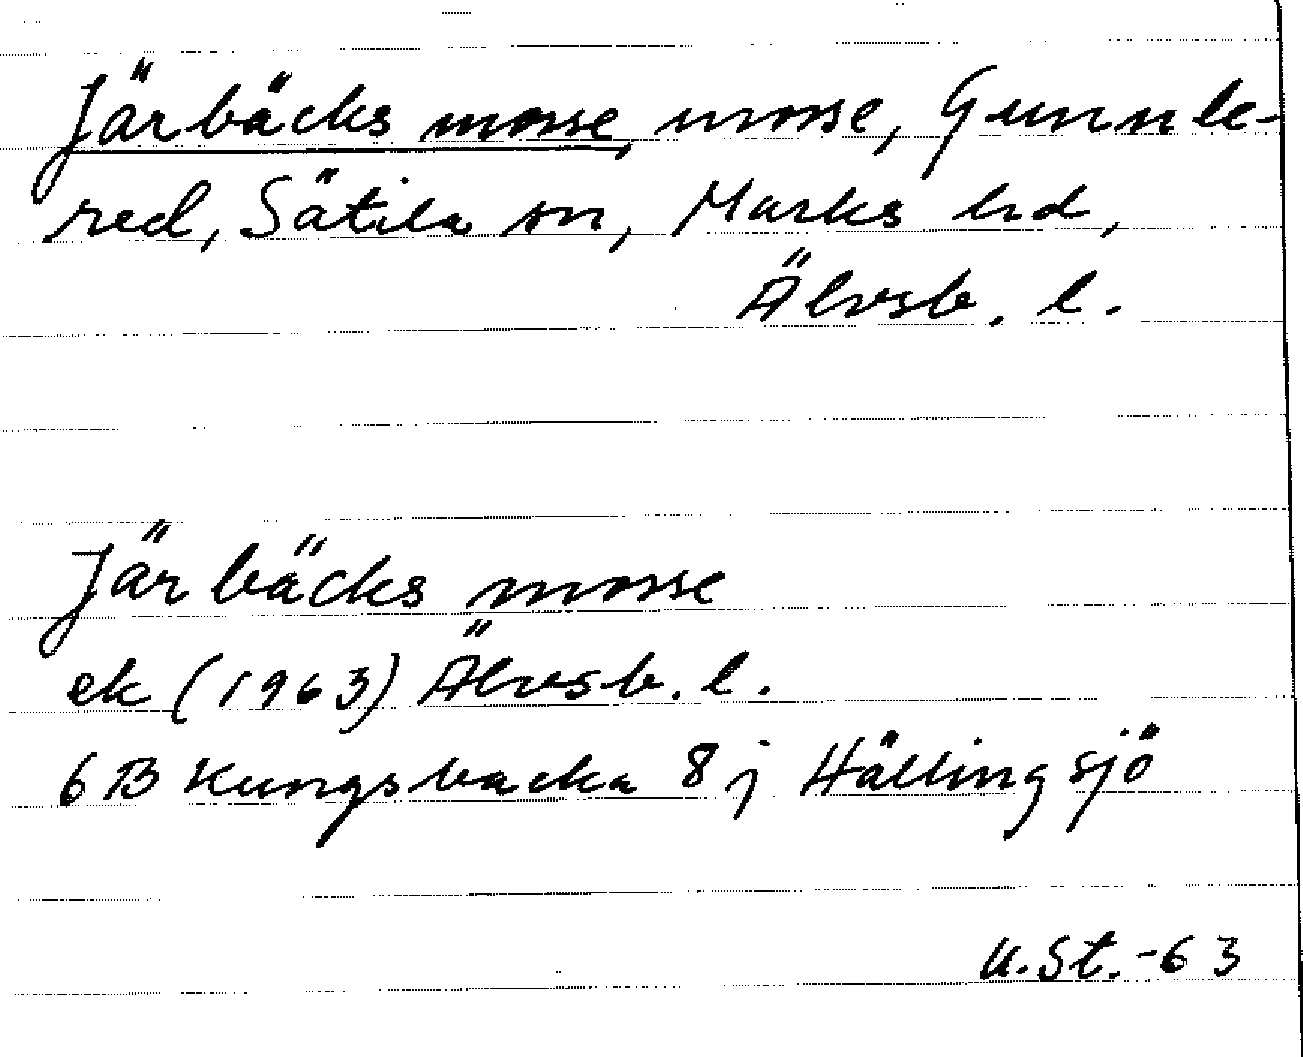 Järbäcks mosse, mosse, Gunnle-
red, Sätila sn, Marks hd,
Älvsb. l.
Järbäcks mosse
ek (1963) Älvsb. l.
6B Kungsbacka 8j Hällingsjö
U.St.-63